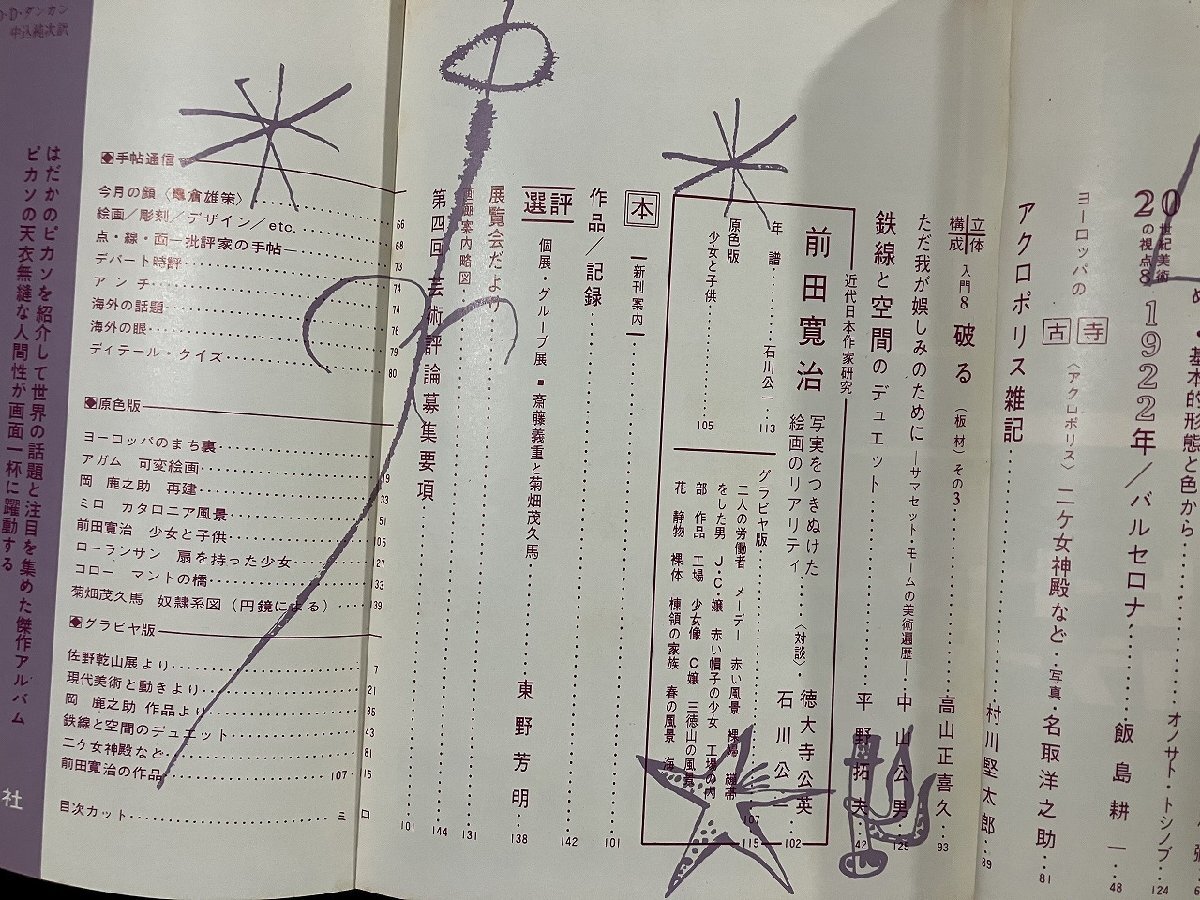 め
基本的形態と色から
オノサト・トシノブ
124
20世紀美術
2の視点8
1922年／バルセロナ
飯島耕一
48
ヨーロッパの
古寺
〈アクロポリス〉二ケ女神殿など
写真・名取洋之助
81
アクロポリス雑記
村川堅太郎
89
立体
構成
入門8
破る
（板材）その3
高山正喜久
93
ただ我が娯しみのために
―サマセット・モームの美術遍歴―
中山公男
125
鉄線と空間のデュエット
平野拓夫
42
近代日本作家研究
前田寛治
写実をつきぬけた
絵画のリアリティ
〈対談〉
徳大寺公英
石川公一
102
年譜
石川公一
113
原色版
少女と子供
105
グラビヤ版
二人の労働者 メーデー 赤い風景 裸婦 繃帯
をした男 J・C嬢 赤い帽子の少女 工場の内
部 作品 工場 少女像 C嬢 三徳山の風景
花 静物 裸体 棟領の家族 春の風景 海
107
115
本
新刊案内
101
作品／記録
142
選評
個展・グループ展 ■ 斎藤義重と菊畑茂久馬
東野芳明
138
展覧会だより
131
画廊案内略図
144
第四回芸術評論募集要項
10
手帖通信
今月の顔〈亀倉雄策〉
66
絵画／彫刻／デザイン／etc.
68
点・線・面―批評家の手帖―
73
デパート時評
74
アンチ
74
海外の話題
76
海外の眼
79
ディテール・クイズ
80
原色版
ヨーロッパのまち裏
アガム 可変絵画
33
岡 鹿之助 再建
ミロ カタロニア風景
51
前田寛治 少女と子供
105
ローランサン 扇を持った少女
コロー マントの橋
菊畑茂久馬 奴隷系図（円鏡による）
139
グラビヤ版
佐野乾山展より
7
現代美術と動きより
21
岡 鹿之助 作品より
鉄線と空間のデュエット
43
二ケ女神殿など
81
前田寛治の作品
107・115
目次カット
ミロ
D・D・ダンカン
中込純次訳
はだかのピカソを紹介して世界の話題と注目を集めた傑作アルバム
ピカソの天衣無縫な人間性が画面一杯に躍動する
社